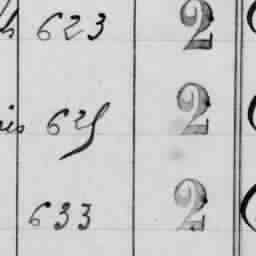 623 2
625 2
633 2